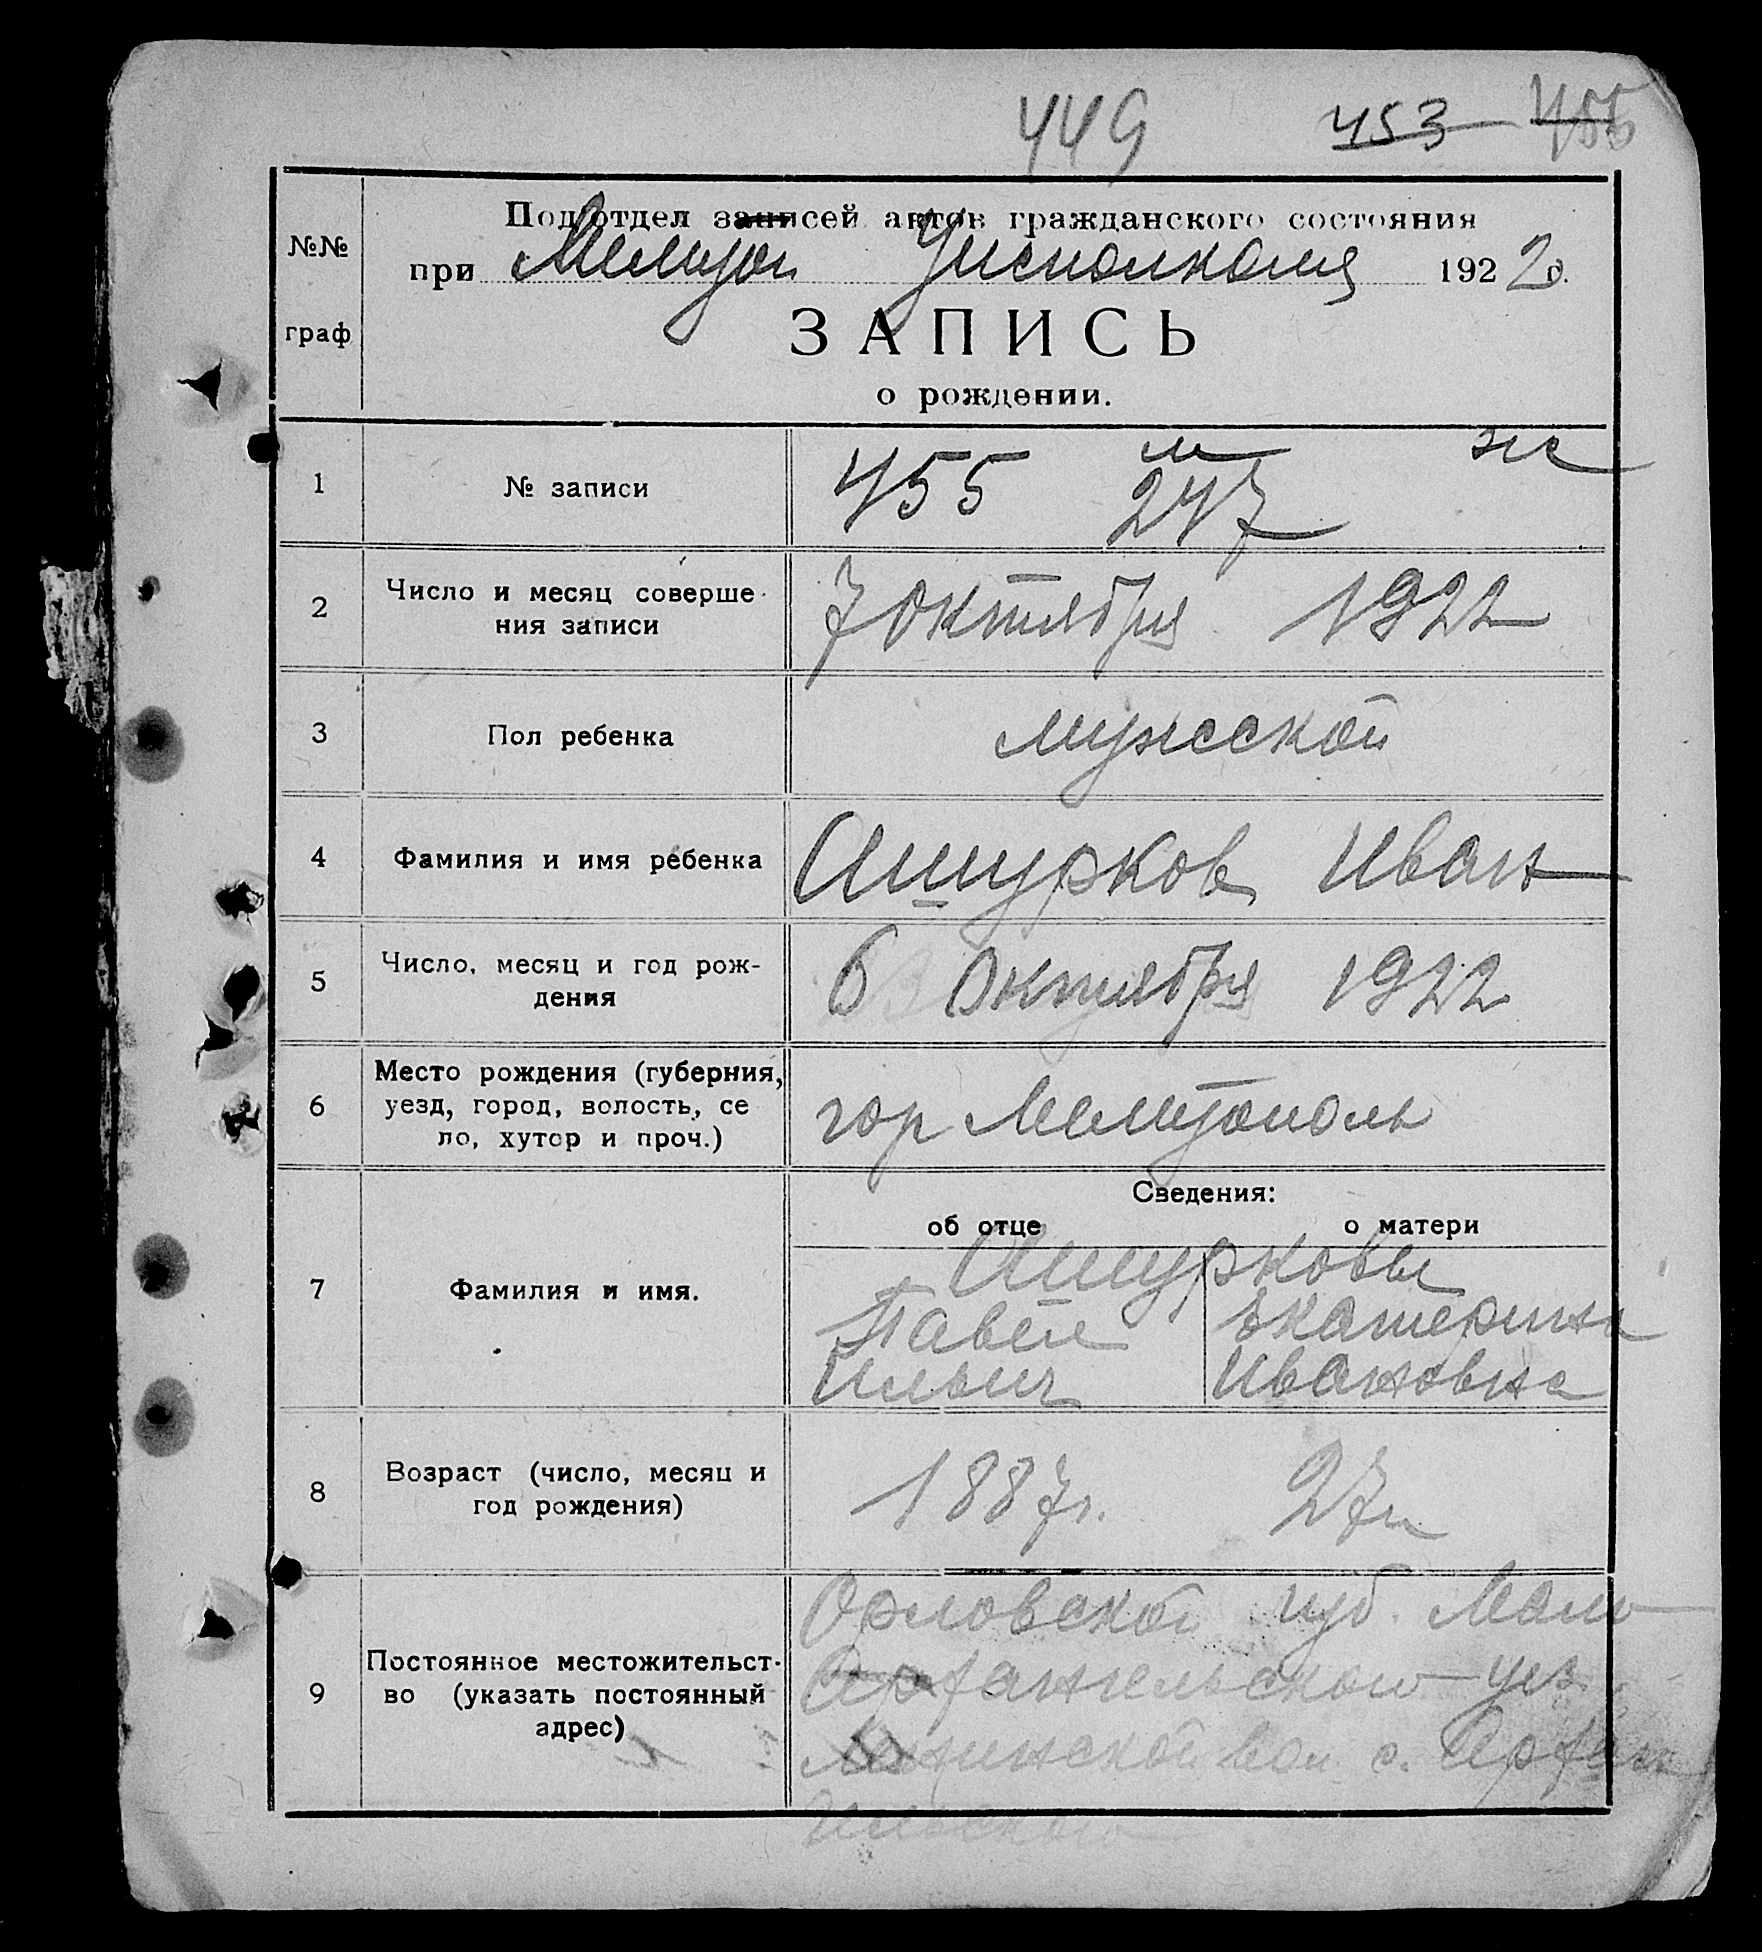 449 453 455
№№
граф
Подотдел записей актов гражданского состояния
при Мелитоп Уисполкома 1922 г.
ЗАПИСЬ
о рождении.
м ж
1 № записи 455 247
2 Число и месяц соверше-
ния записи 7 Октября 1922
3 Пол ребенка мужской
4 Фамилия и имя ребенка Ашурков Иван
5 Число, месяц и год рож-
дения 6 Октября 1922
6 Место рождения (губерния,
уезд, город, волость, се
ло, хутор и проч.) гор Мелитополь
Сведения:
об отце о матери
7 Фамилия и имя. Ашурковы
Павел Екатерина
Ильич Ивановна
8 Возраст (число, месяц и
год рождения) 1887г. 27л
9 Постоянное местожительст-
во (указать постоянный
адрес) Орловской губ. Мало
Архангельского уез.
вол с. Архан
гельского